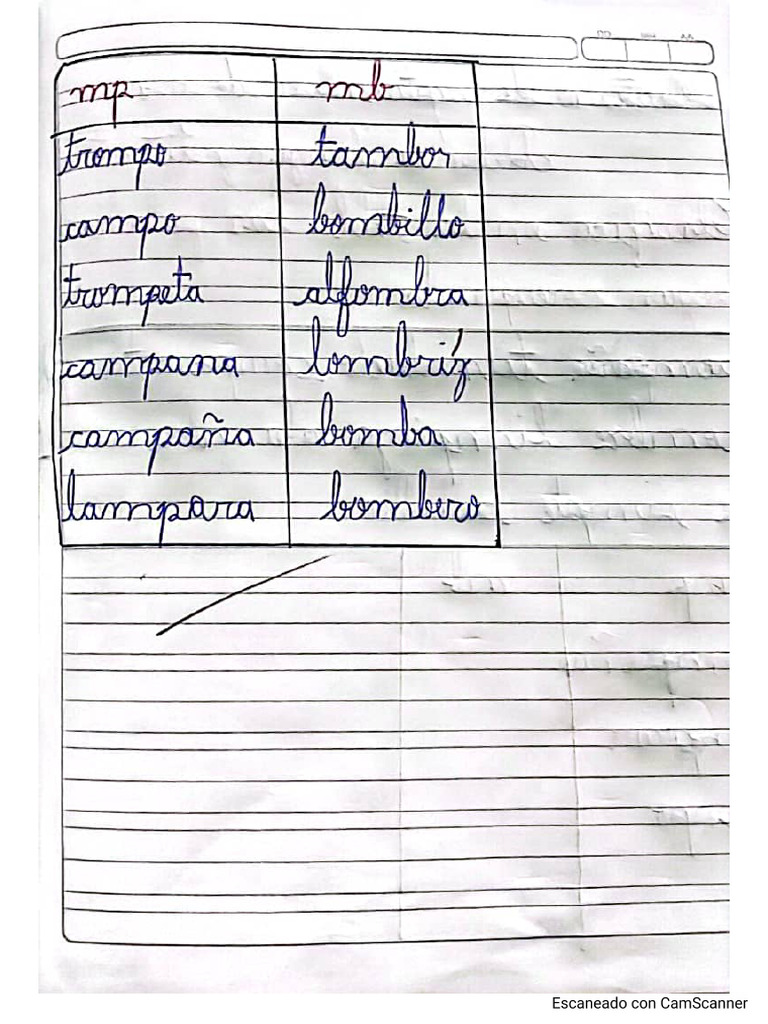 mp mb
trompo tambor
campo bombillo
trompeta alfombra
campana lombríz
campaña bomba
lampara bombero
Escaneado con CamScanner